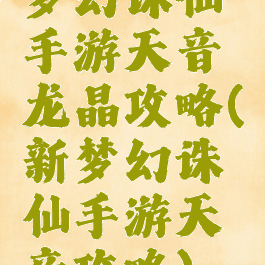 梦幻诛仙
手游天音
龙晶攻略(
新梦幻诛
仙手游天
音攻略)